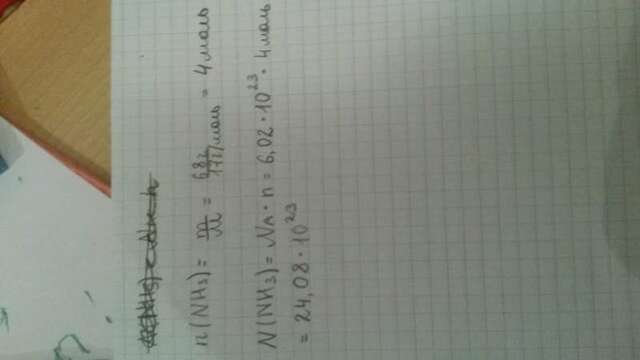 n(NH₃) = m/M = 68г/17г/моль = 4 моль
N(NH₃) = Nᴀ · n = 6,02 · 10²³ · 4 моль
= 24,08 · 10²³